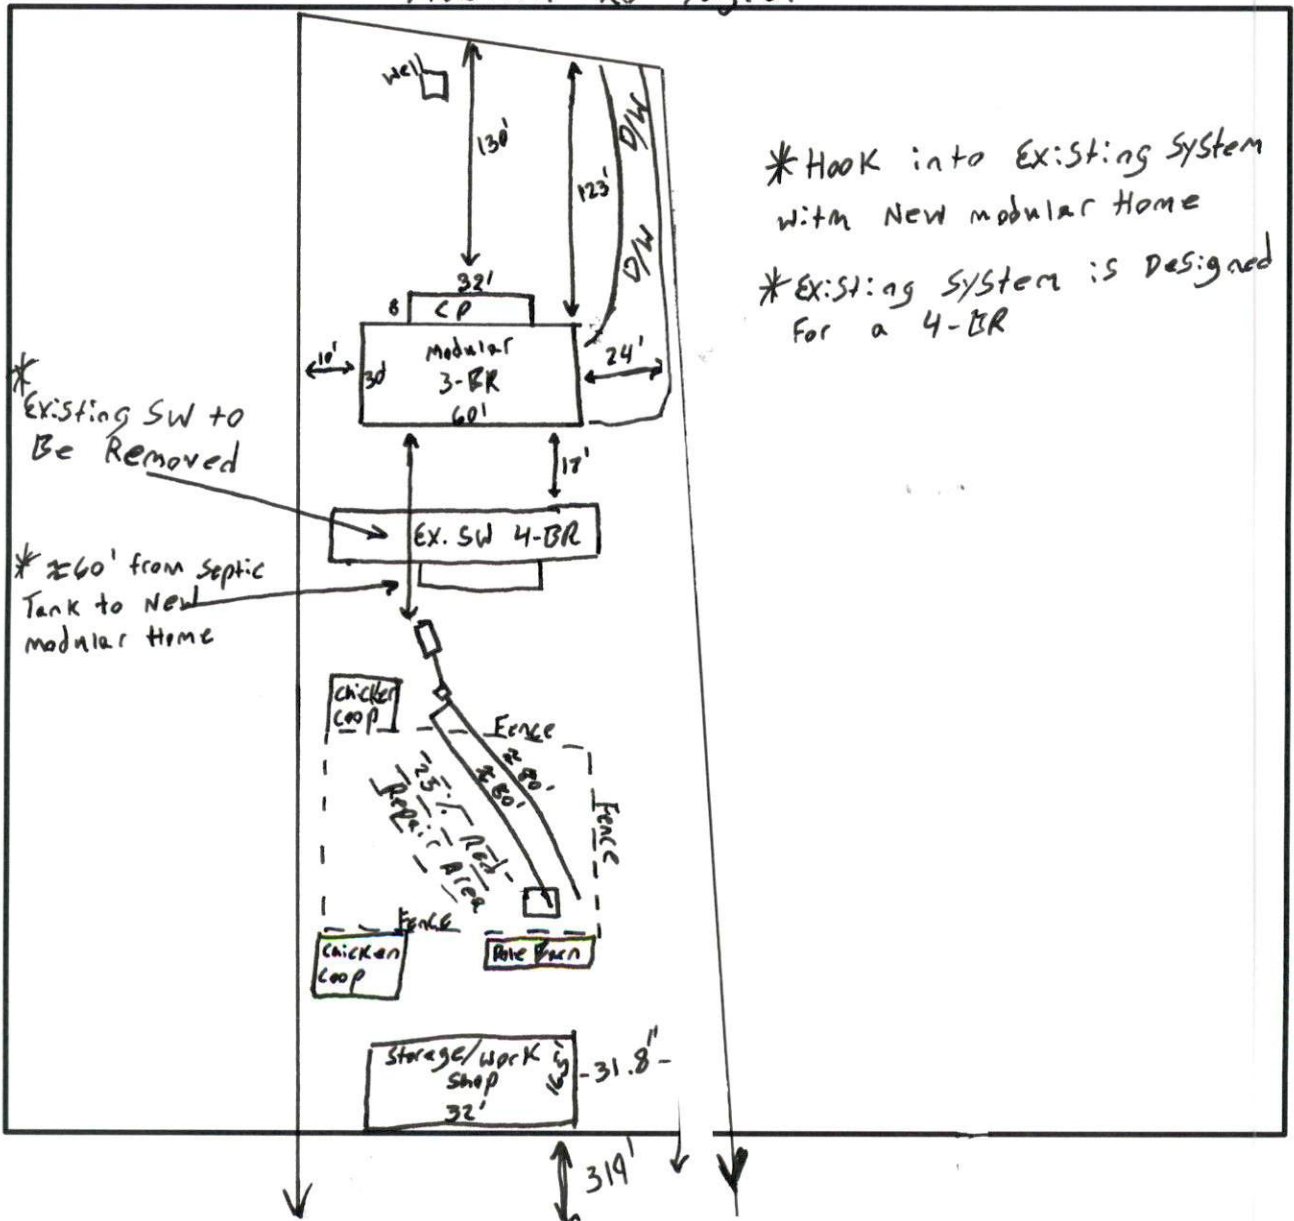 Well
130'
123'
D/W
D/W
* Hook into Existing System
with New modular Home
* Existing System is Designed
For a 4-BR
32'
8
CP
10'
30'
Modular
3-BR
60'
24'
*
Existing SW to
Be Removed
EX. SW 4-BR
* ≈60' from Septic
Tank to New
modular Home
Chicken
Coop
Fence
≈ 80'
≈ 80'
25% Red.
Repair Area
Fence
Fence
Chicken
Coop
Pole Barn
Storage/Work
Shop
32'
-31.8"-
319'